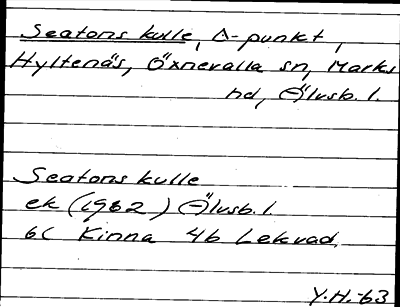 Seatons kulle, Δ-punkt,
Hyltenäs, Öxnevalla sn, Marks
hd, Älvsb. l.
Seatons kulle
ek (1962) Älvsb. l.
6C Kinna 4b Lekvad.
Y.H.-63